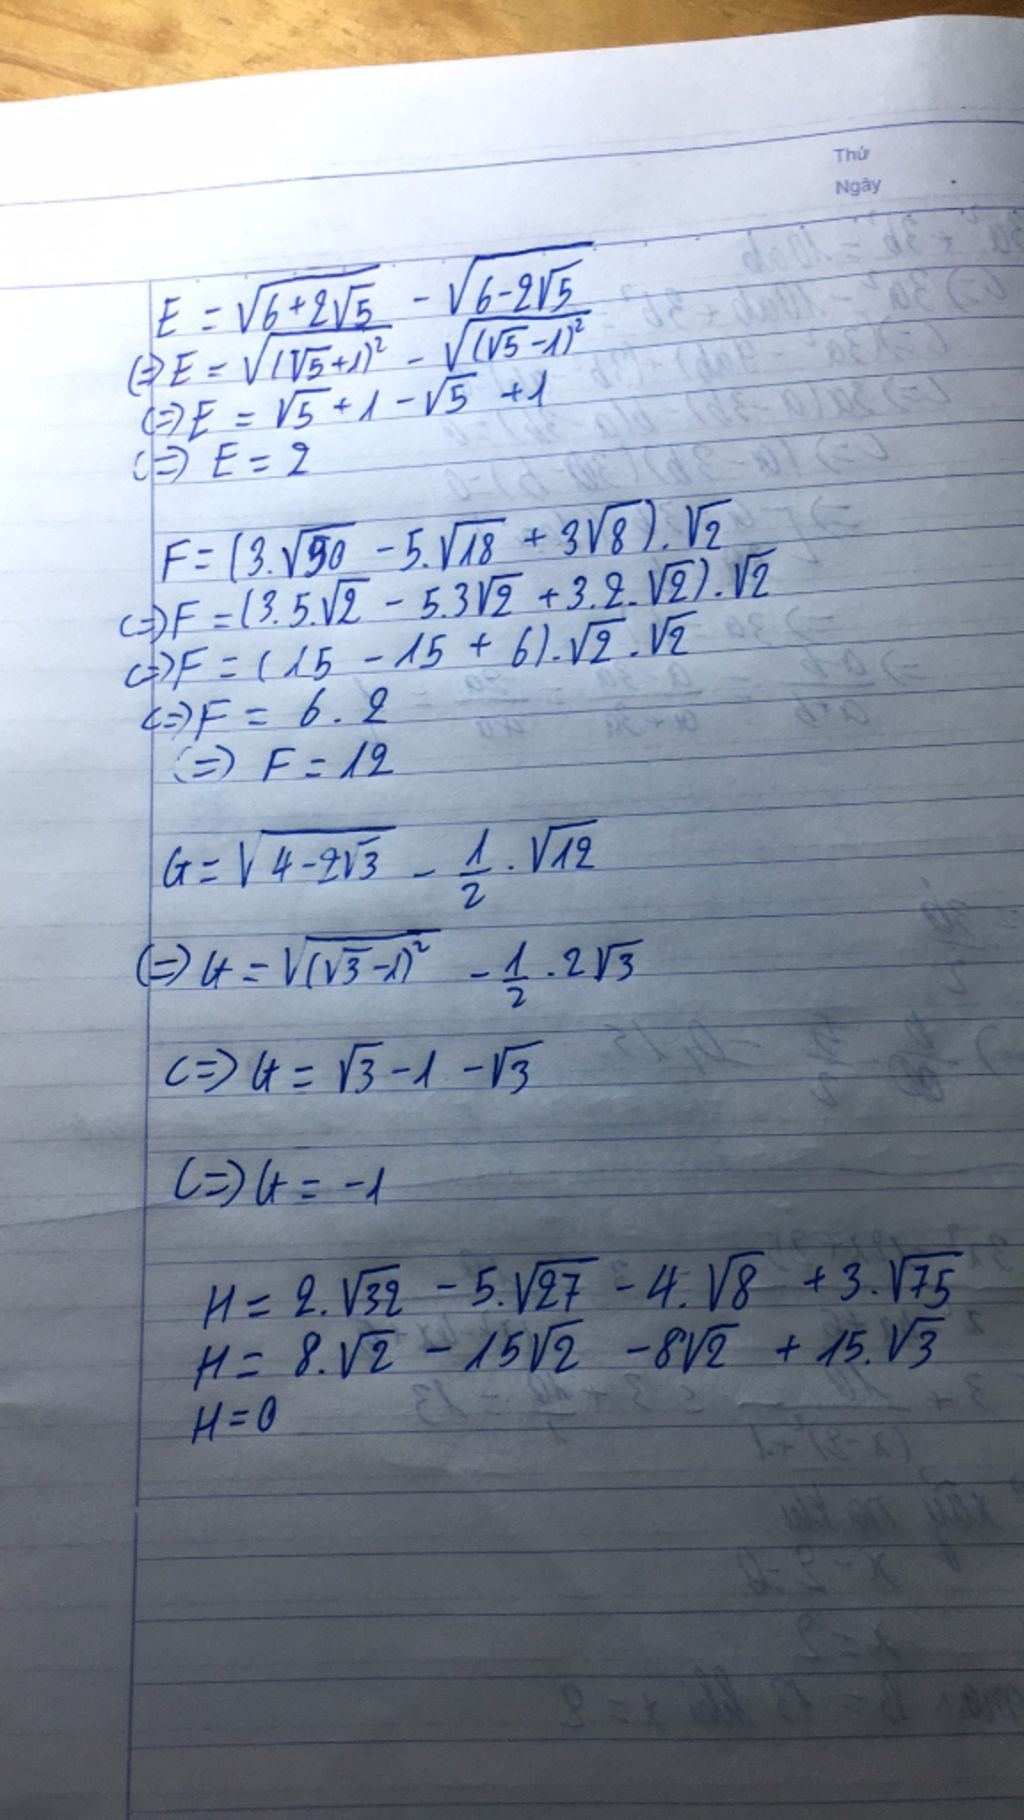 Thứ
Ngày
E = √(6+2√5) - √(6-2√5)
(=) E = √((√5+1)²) - √((√5-1)²)
(=) E = √5 + 1 - √5 + 1
(=) E = 2
F = (3.√50 - 5.√18 + 3√8).√2
(=) F = (3.5.√2 - 5.3√2 + 3.2.√2).√2
(=) F = (15 - 15 + 6).√2.√2
(=) F = 6.2
(=) F = 12
G = √(4-2√3) - 1/2.√12
(=) G = √((√3-1)²) - 1/2.2√3
(=) G = √3 - 1 - √3
(=) G = -1
H = 2.√32 - 5.√27 - 4.√8 + 3.√75
H = 8.√2 - 15√2 - 8√2 + 15.√3
H = 0